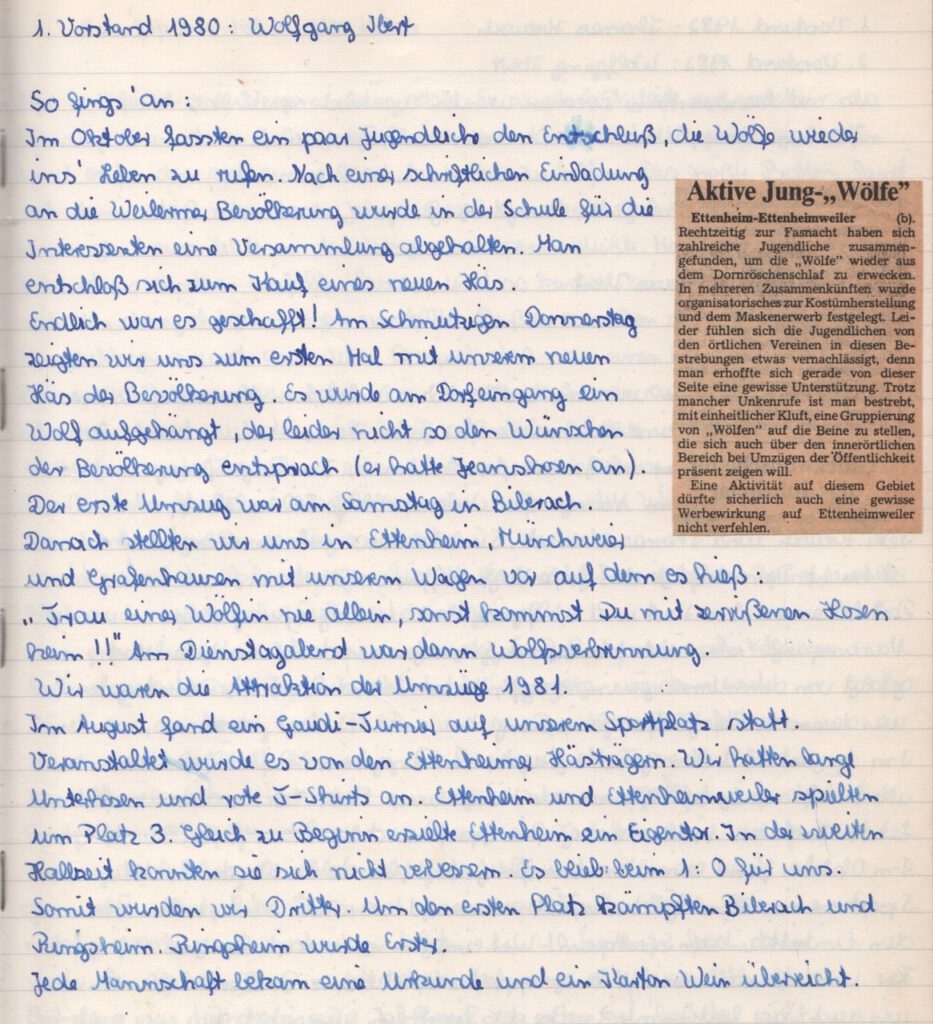 1. Vorstand 1980: Wolfgang Ibert
So fing's an:
Im Oktober fassten ein paar Jugendliche den Entschluß, die Wölfe wieder
ins' Leben zu rufen. Nach einer schriftlichen Einladung
an die Weilermer Bevölkerung wurde in der Schule für die
Interessenten eine Versammlung abgehalten. Man
entschloß sich zum Kauf eines neuen Häs.
Endlich war es geschafft! Am Schmutzigen Donnerstag
zeigten wir uns zum ersten Mal mit unserem neuen
Häs der Bevölkerung. Es wurde am Dorfeingang ein
Wolf aufgehängt, der leider nicht so den Wünschen
der Bevölkerung entsprach (er hatte Jeanshosen an).
Der erste Umzug war am Samstag in Biberach
Danach stellten wir uns in Ettenheim, Münchweier
und Grafenhausen mit unserem Wagen vor auf dem es hieß:
„Trau einer Wölfin nie allein, sonst kommst Du mit zerrißenen Hosen
heim!!" Am Dienstagabend war dann Wolfsverbrennung.
Wir waren die Attraktion der Umzüge 1981.
Im August fand ein Gaudi-Turnier auf unserem Sportplatz statt.
Veranstaltet wurde es von den Ettenheimer Hästrägern. Wir hatten lange
Unterhosen und rote T-Shirts an. Ettenheim und Ettenheimweiler spielten
um Platz 3. Gleich zu Beginn erzielte Ettenheim ein Eigentor. In der zweiten
Halbzeit konnten sie sich nicht verbessern. Es blieb beim 1:0 für uns.
Somit wurden wir Dritter. Um den ersten Platz kämpften Biberach und
Ringsheim. Ringsheim wurde Erster.
Jede Mannschaft bekam eine Urkunde und ein Karton Wein überreicht.
Aktive Jung-„Wölfe”
Ettenheim-Ettenheimweiler (b).
Rechtzeitig zur Fasnacht haben sich
zahlreiche Jugendliche zusammen-
gefunden, um die „Wölfe” wieder aus
dem Dornröschenschlaf zu erwecken.
In mehreren Zusammenkünften wurde
organisatorisches zur Kostümherstellung
und dem Maskenerwerb festgelegt. Lei-
der fühlen sich die Jugendlichen von
den örtlichen Vereinen in diesen Be-
strebungen etwas vernachlässigt, denn
man erhoffte sich gerade von dieser
Seite eine gewisse Unterstützung. Trotz
mancher Unkenrufe ist man bestrebt,
mit einheitlicher Kluft, eine Gruppierung
von „Wölfen” auf die Beine zu stellen,
die sich auch über den innerörtlichen
Bereich bei Umzügen der Öffentlichkeit
präsent zeigen will.
Eine Aktivität auf diesem Gebiet
dürfte sicherlich auch eine gewisse
Werbewirkung auf Ettenheimweiler
nicht verfehlen.